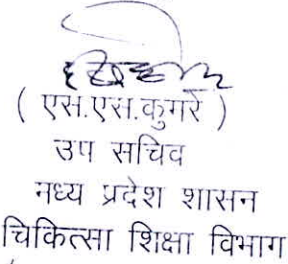 ( एस.एस.कुमरे )
उप सचिव
मध्य प्रदेश शासन
चिकित्सा शिक्षा विभाग